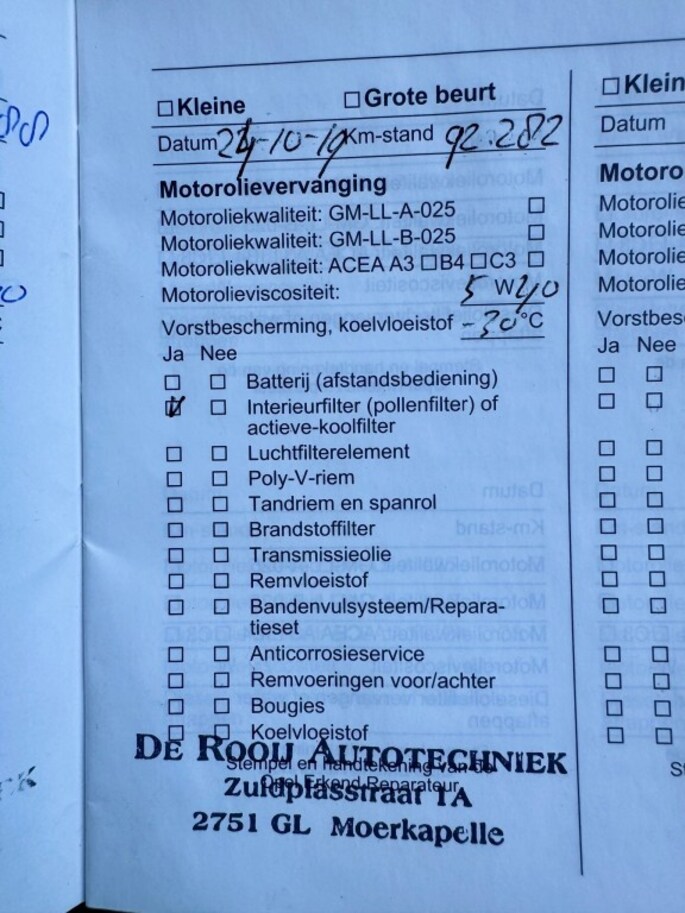 ☐ Kleine ☐ Grote beurt
Datum 24-10-19 Km-stand 92.282
Motorolievervanging
Motoroliekwaliteit: GM-LL-A-025 ☐
Motoroliekwaliteit: GM-LL-B-025 ☐
Motoroliekwaliteit: ACEA A3 ☐ B4 ☐ C3 ☐
Motorolieviscositeit: 5 W 40
Vorstbescherming, koelvloeistof -30°C
Ja Nee
☐ ☐ Batterij (afstandsbediening)
☑ ☐ Interieurfilter (pollenfilter) of
actieve-koolfilter
☐ ☐ Luchtfilterelement
☐ ☐ Poly-V-riem
☐ ☐ Tandriem en spanrol
☐ ☐ Brandstoffilter
☐ ☐ Transmissieolie
☐ ☐ Remvloeistof
☐ ☐ Bandenvulsysteem/Repara-
tieset
☐ ☐ Anticorrosieservice
☐ ☐ Remvoeringen voor/achter
☐ ☐ Bougies
☐ ☐ Koelvloeistof
DE ROOIJ AUTOTECHNIEK
Stempel en handtekening van de
Opel Erkend Reparateur
Zuidplasstraat 1A
2751 GL Moerkapelle
☐ Klein
Datum
Motoro
Motorolie
Motorolie
Motorolie
Motorolie
Vorstbes
Ja Nee